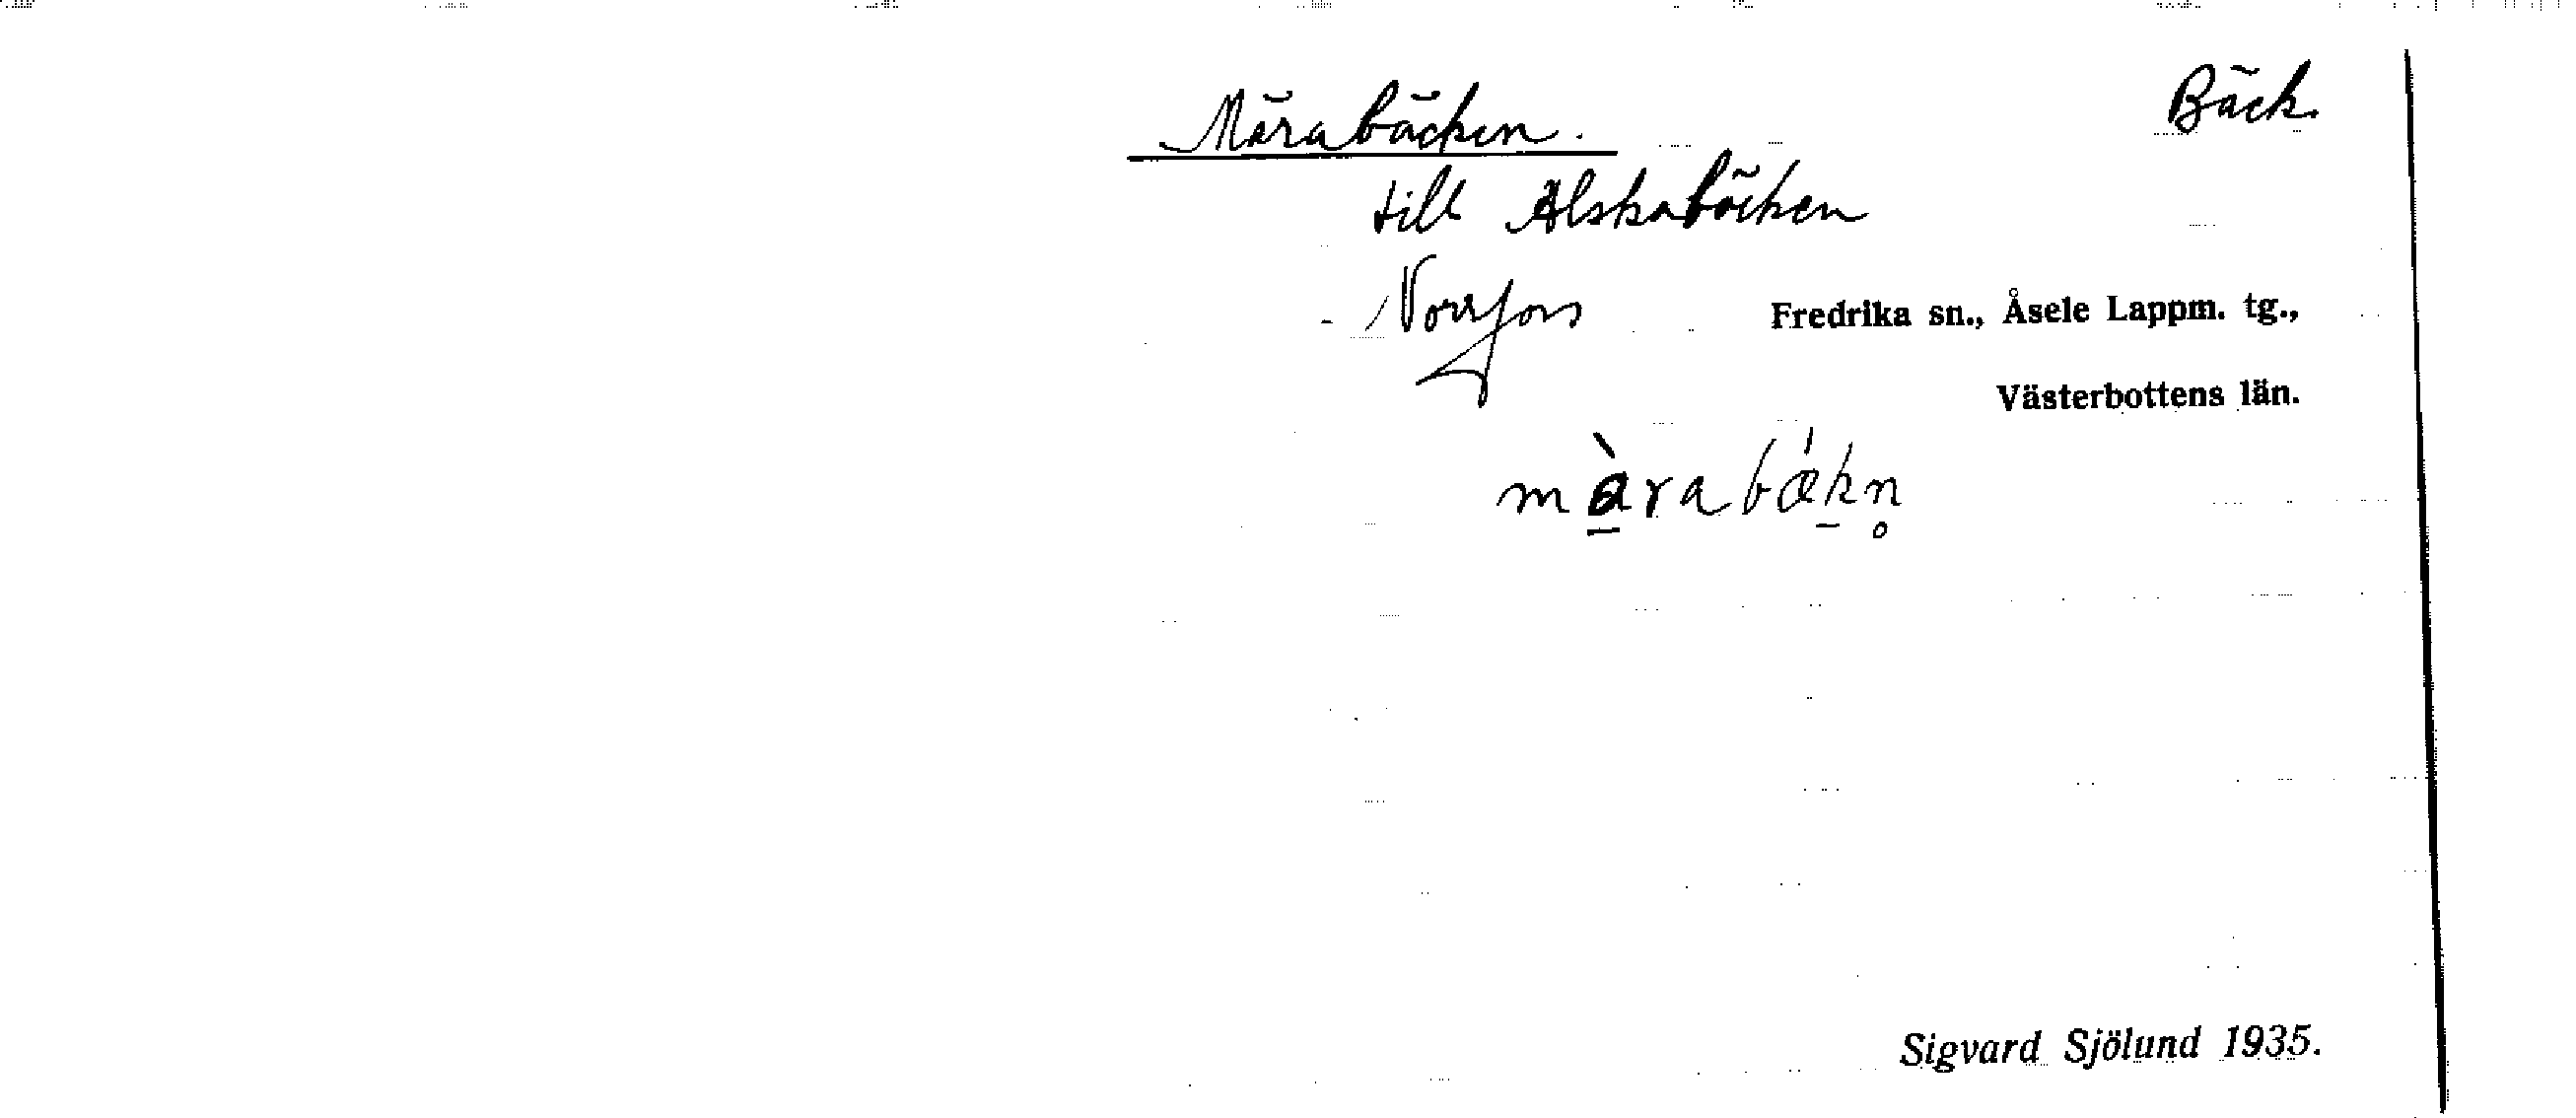 Märabäcken. Bäck.
till Alskabäcken
Norrfors Fredrika sn., Åsele Lappm. tg.,
Västerbottens län.
Sigvard Sjölund 1935.